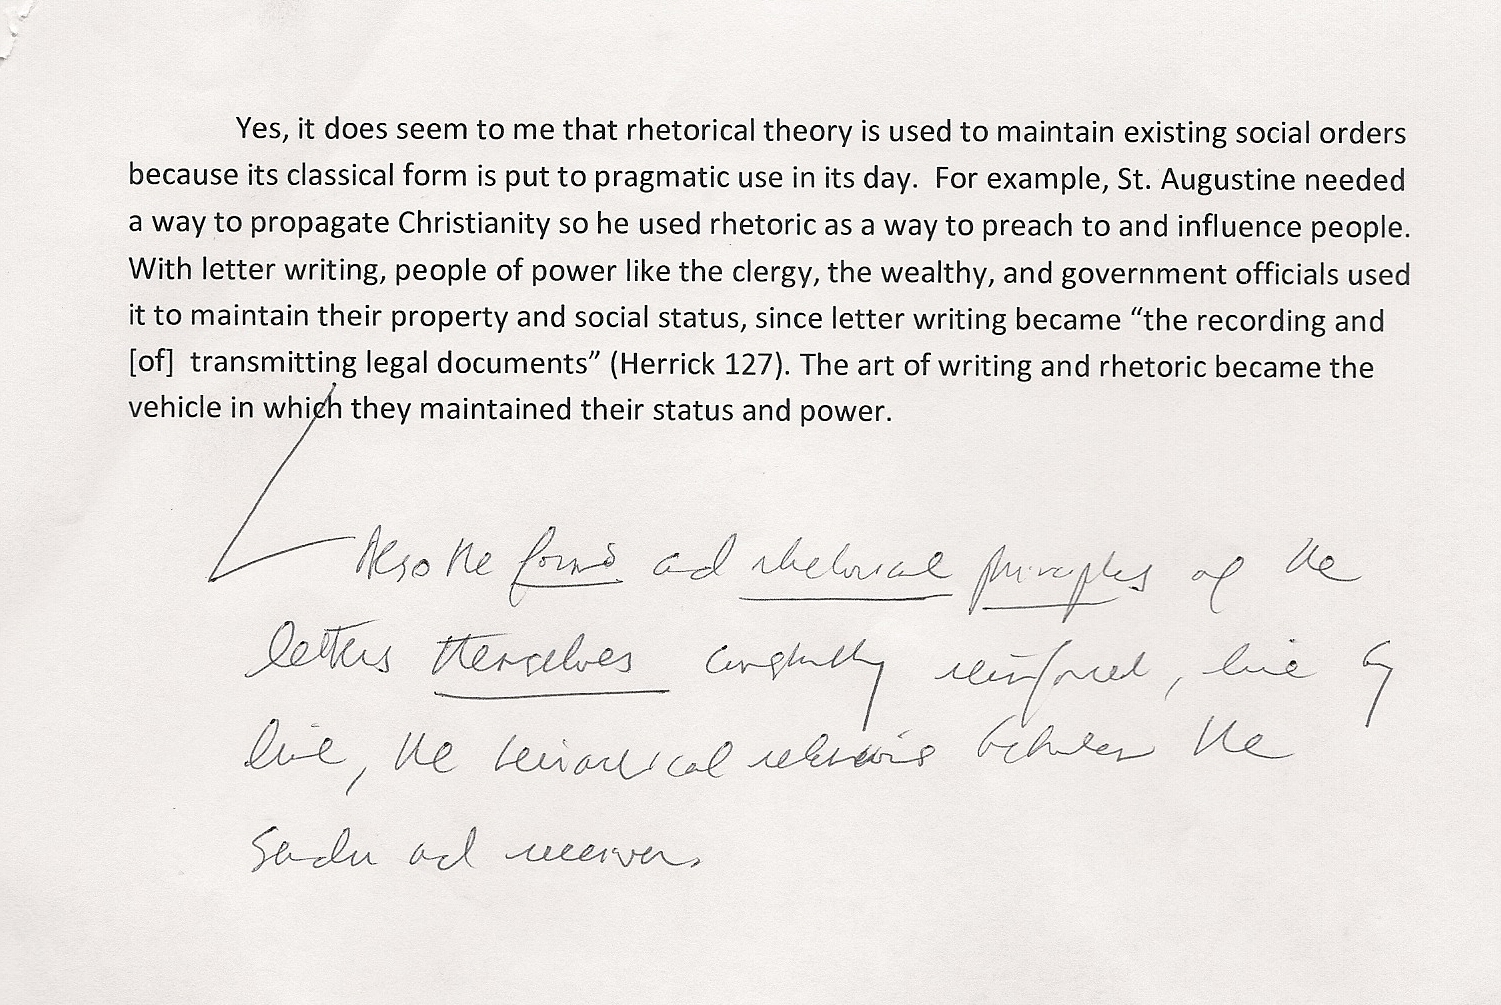 Yes, it does seem to me that rhetorical theory is used to maintain existing social orders
because its classical form is put to pragmatic use in its day.  For example, St. Augustine needed
a way to propagate Christianity so he used rhetoric as a way to preach to and influence people.
With letter writing, people of power like the clergy, the wealthy, and government officials used
it to maintain their property and social status, since letter writing became “the recording and
[of]  transmitting legal documents” (Herrick 127). The art of writing and rhetoric became the
vehicle in which they maintained their status and power.
Also the forms and rhetorical principles of the
letters themselves carefully reinforced, line by
line, the hierarchical relations between the
sender and receiver.